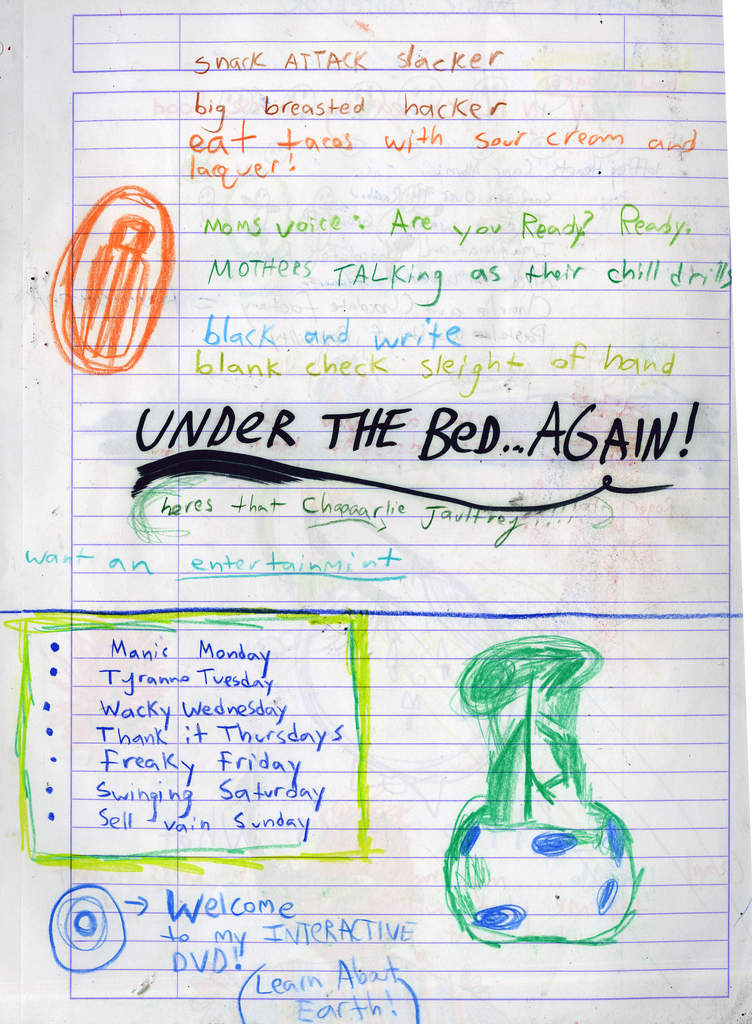 snack ATTACK slacker
big breasted hacker
eat tacos with sour cream and
lacquer!
Moms voice: Are you Ready? Ready.
MOTHERS TALKing as their chill drills
black and write
blank check sleight of hand
UNDER THE BED...AGAIN!
heres that Chaaaarlie Jaultrey!!!!
want an entertainmint
• Manic Monday
• Tyranno Tuesday
• Wacky Wednesday
• Thank it Thursdays
• Freaky Friday
• Swinging Saturday
• Sell vain Sunday
→ Welcome
to my INTERACTIVE
DVD!
(Learn About
Earth!)